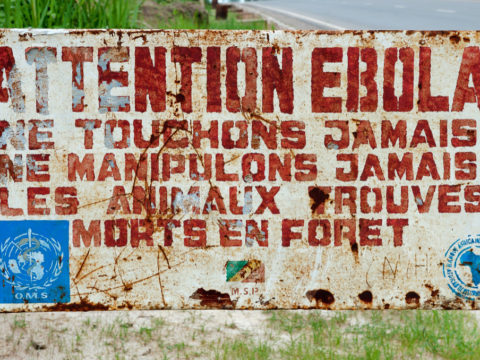 ATTENTION EBOLA
NE TOUCHONS JAMAIS
NE MANIPULONS JAMAIS
LES ANIMAUX TROUVES
MORTS EN FORET
O.M.S
M.S.P